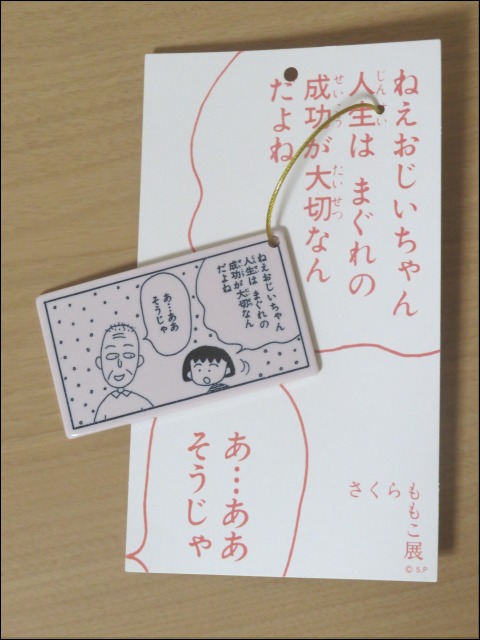 ねえおじいちゃん
人生は まぐれの
成功が大切なん
だよね
あ…ああ
そうじゃ
さくらももこ展
© S.P
ねえおじいちゃん
人生は まぐれの
成功が大切なん
だよね
あ…ああ
そうじゃ